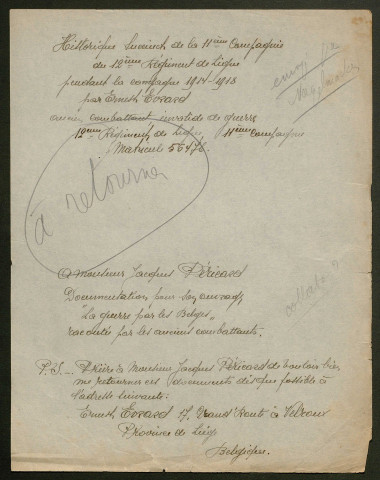 Historique Succinct de la 11ème Compagnie
du 12ème Régiment de Ligne
pendant la campagne 1914-1918
par Ernest Evrard
ancien combattant invalide de guerre
12ème Régiment de Ligne, 11ème Compagnie
Matricul
envoi
à retourner
à monsieur Jacques Péricard
Documentation pour son ouvrage
"La guerre par les Belges"
racontée par les anciens combattants.
P.S. - Prière à Monsieur Jacques Péricard de vouloir bien
me retourner ces documents dès que possible à
l'adresse suivante:
Ernest Evrard 17, Grand' Route à Velroux
Province de Liège
Belgique.